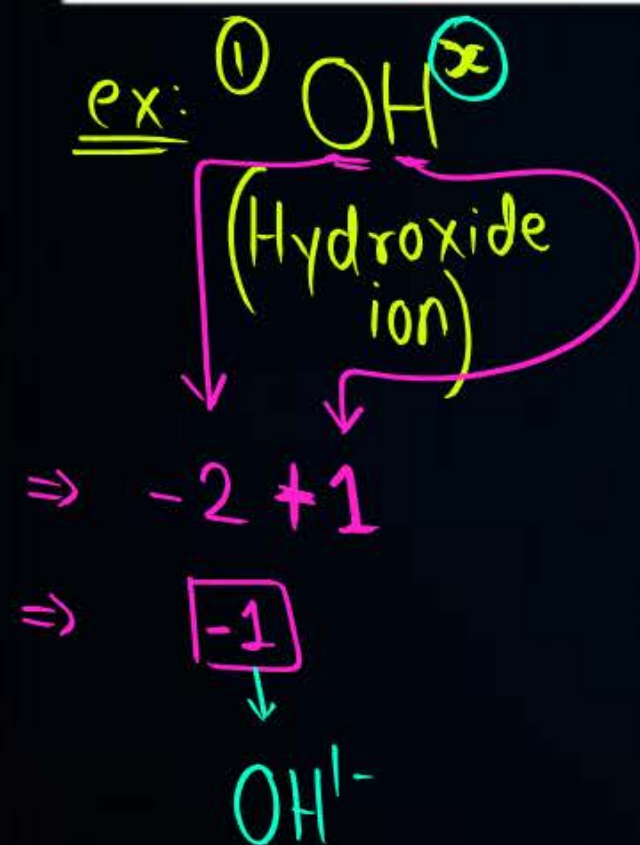 ex: ① OHˣ
(Hydroxide
ion)
⇒ -2 + 1
⇒ -1
OH¹⁻